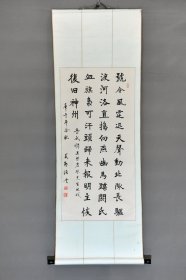 號令風霆迅天聲動北陬長驅
渡河洛直搗向燕幽馬蹀閼氏
血旗梟可汗頭歸來報明主恢
復旧神州
岳武穆